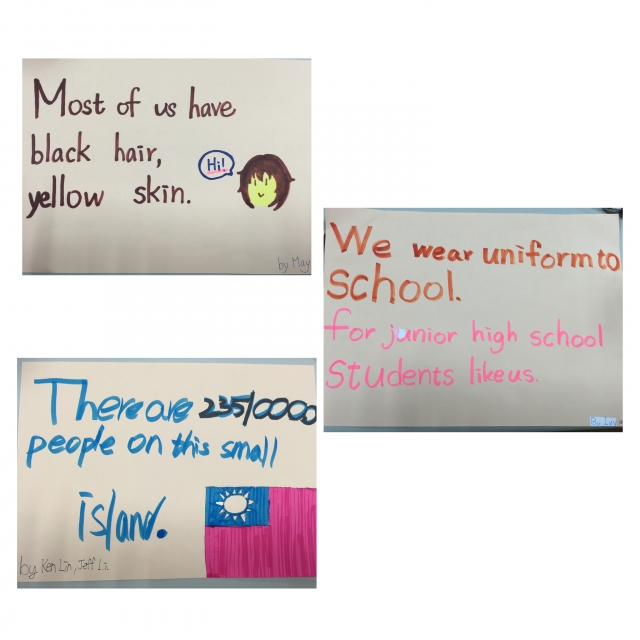 Most of us have
black hair,
yellow skin.
Hi!
by May
We wear uniform to
school.
for junior high school
students like us.
There are 23510000
people on this small
island.
by Ken Lin, Jeff Li